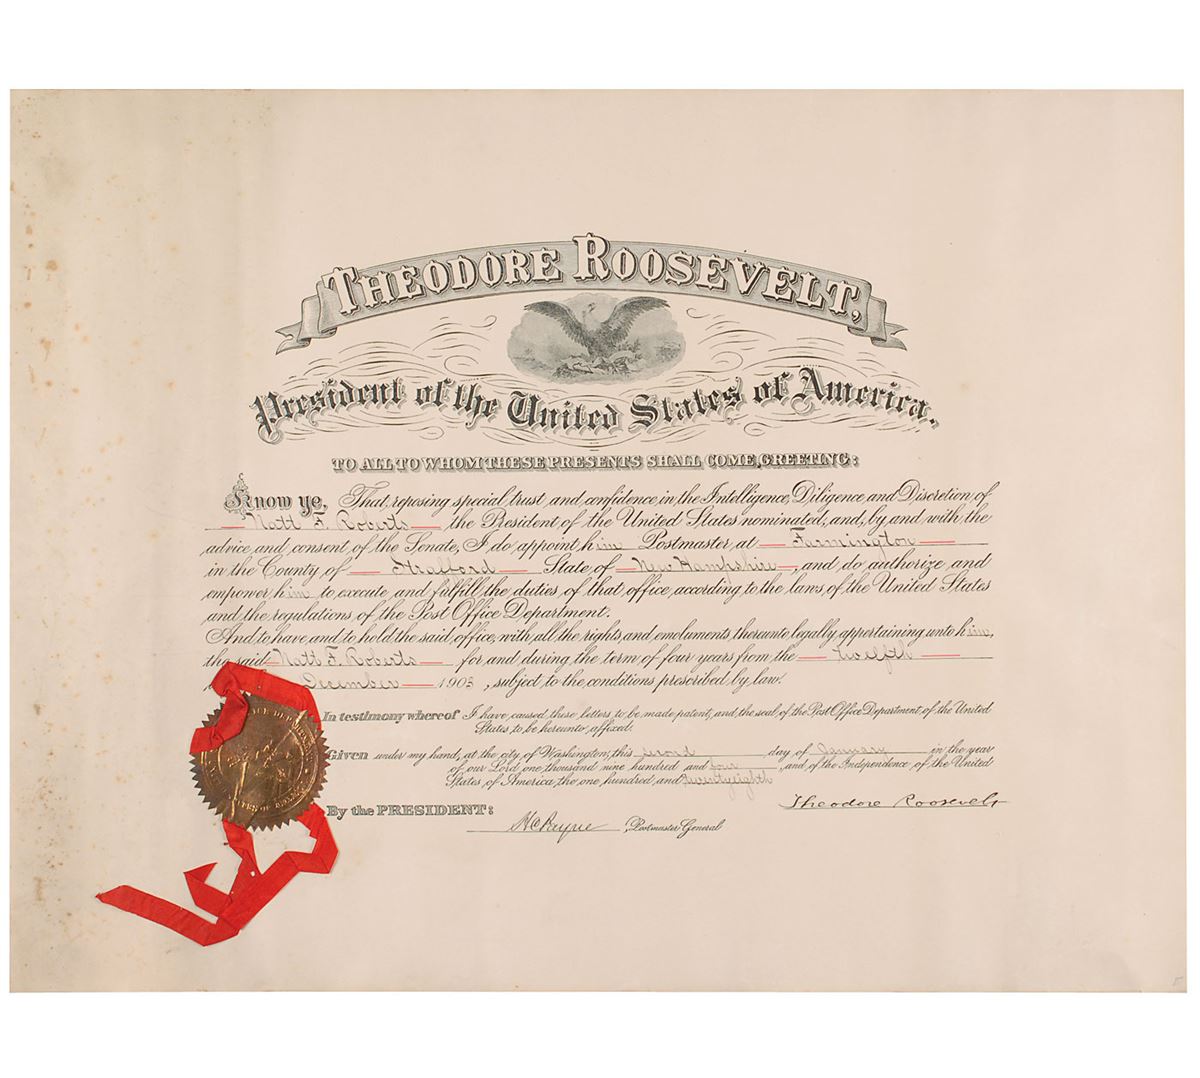 THEODORE ROOSEVELT,
President of the United States of America.
TO ALL TO WHOM THESE PRESENTS SHALL COME, GREETING:
Know ye, That reposing special trust and confidence in the Intelligence, Diligence, and Discretion of
Natt F. Roberts, the President of the United States nominated, and, by and with the
advice and consent of the Senate, I do appoint him Postmaster at Farmington
in the County of Strafford State of New Hampshire, and do authorize and
empower him to execute and fulfill the duties of that office, according to the laws of the United States
and the regulations of the Post Office Department.
And to have and to hold the said office, with all the rights and emoluments thereunto legally appertaining unto him,
the said Natt F. Roberts for and during the term of four years from the twelfth
December 1903, subject to the conditions prescribed by law.
In testimony whereof I have caused these letters to be made patent, and the seal of the Post Office Department of the United
States to be hereunto affixed.
Given under my hand, at the city of Washington, this second day of January in the year
of our Lord one thousand nine hundred and four, and of the Independence of the United
States of America, the one hundred and twenty eighth
Theodore Roosevelt
By the PRESIDENT:
H C Payne, Postmaster General